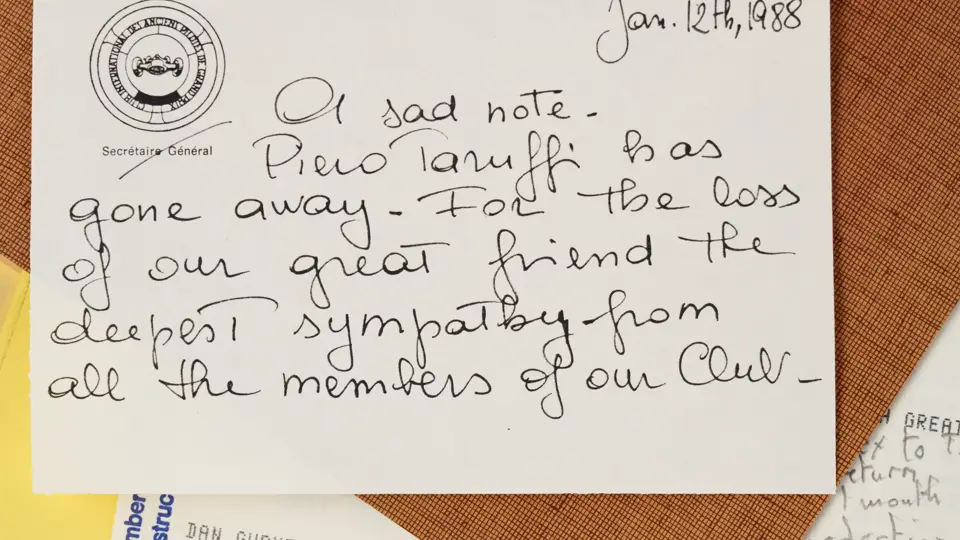 Jan. 12th, 1988
CLUB INTERNATIONAL DES ANCIENS PILOTES DE GRAND PRIX
Secrétaire Général
A sad note -
Piero Taruffi has
gone away - For the loss
of our great friend the
deepest sympathy from
all the members of our Club -
GREAT
to
eturn
1 month
mber
struc
DAN GURNE